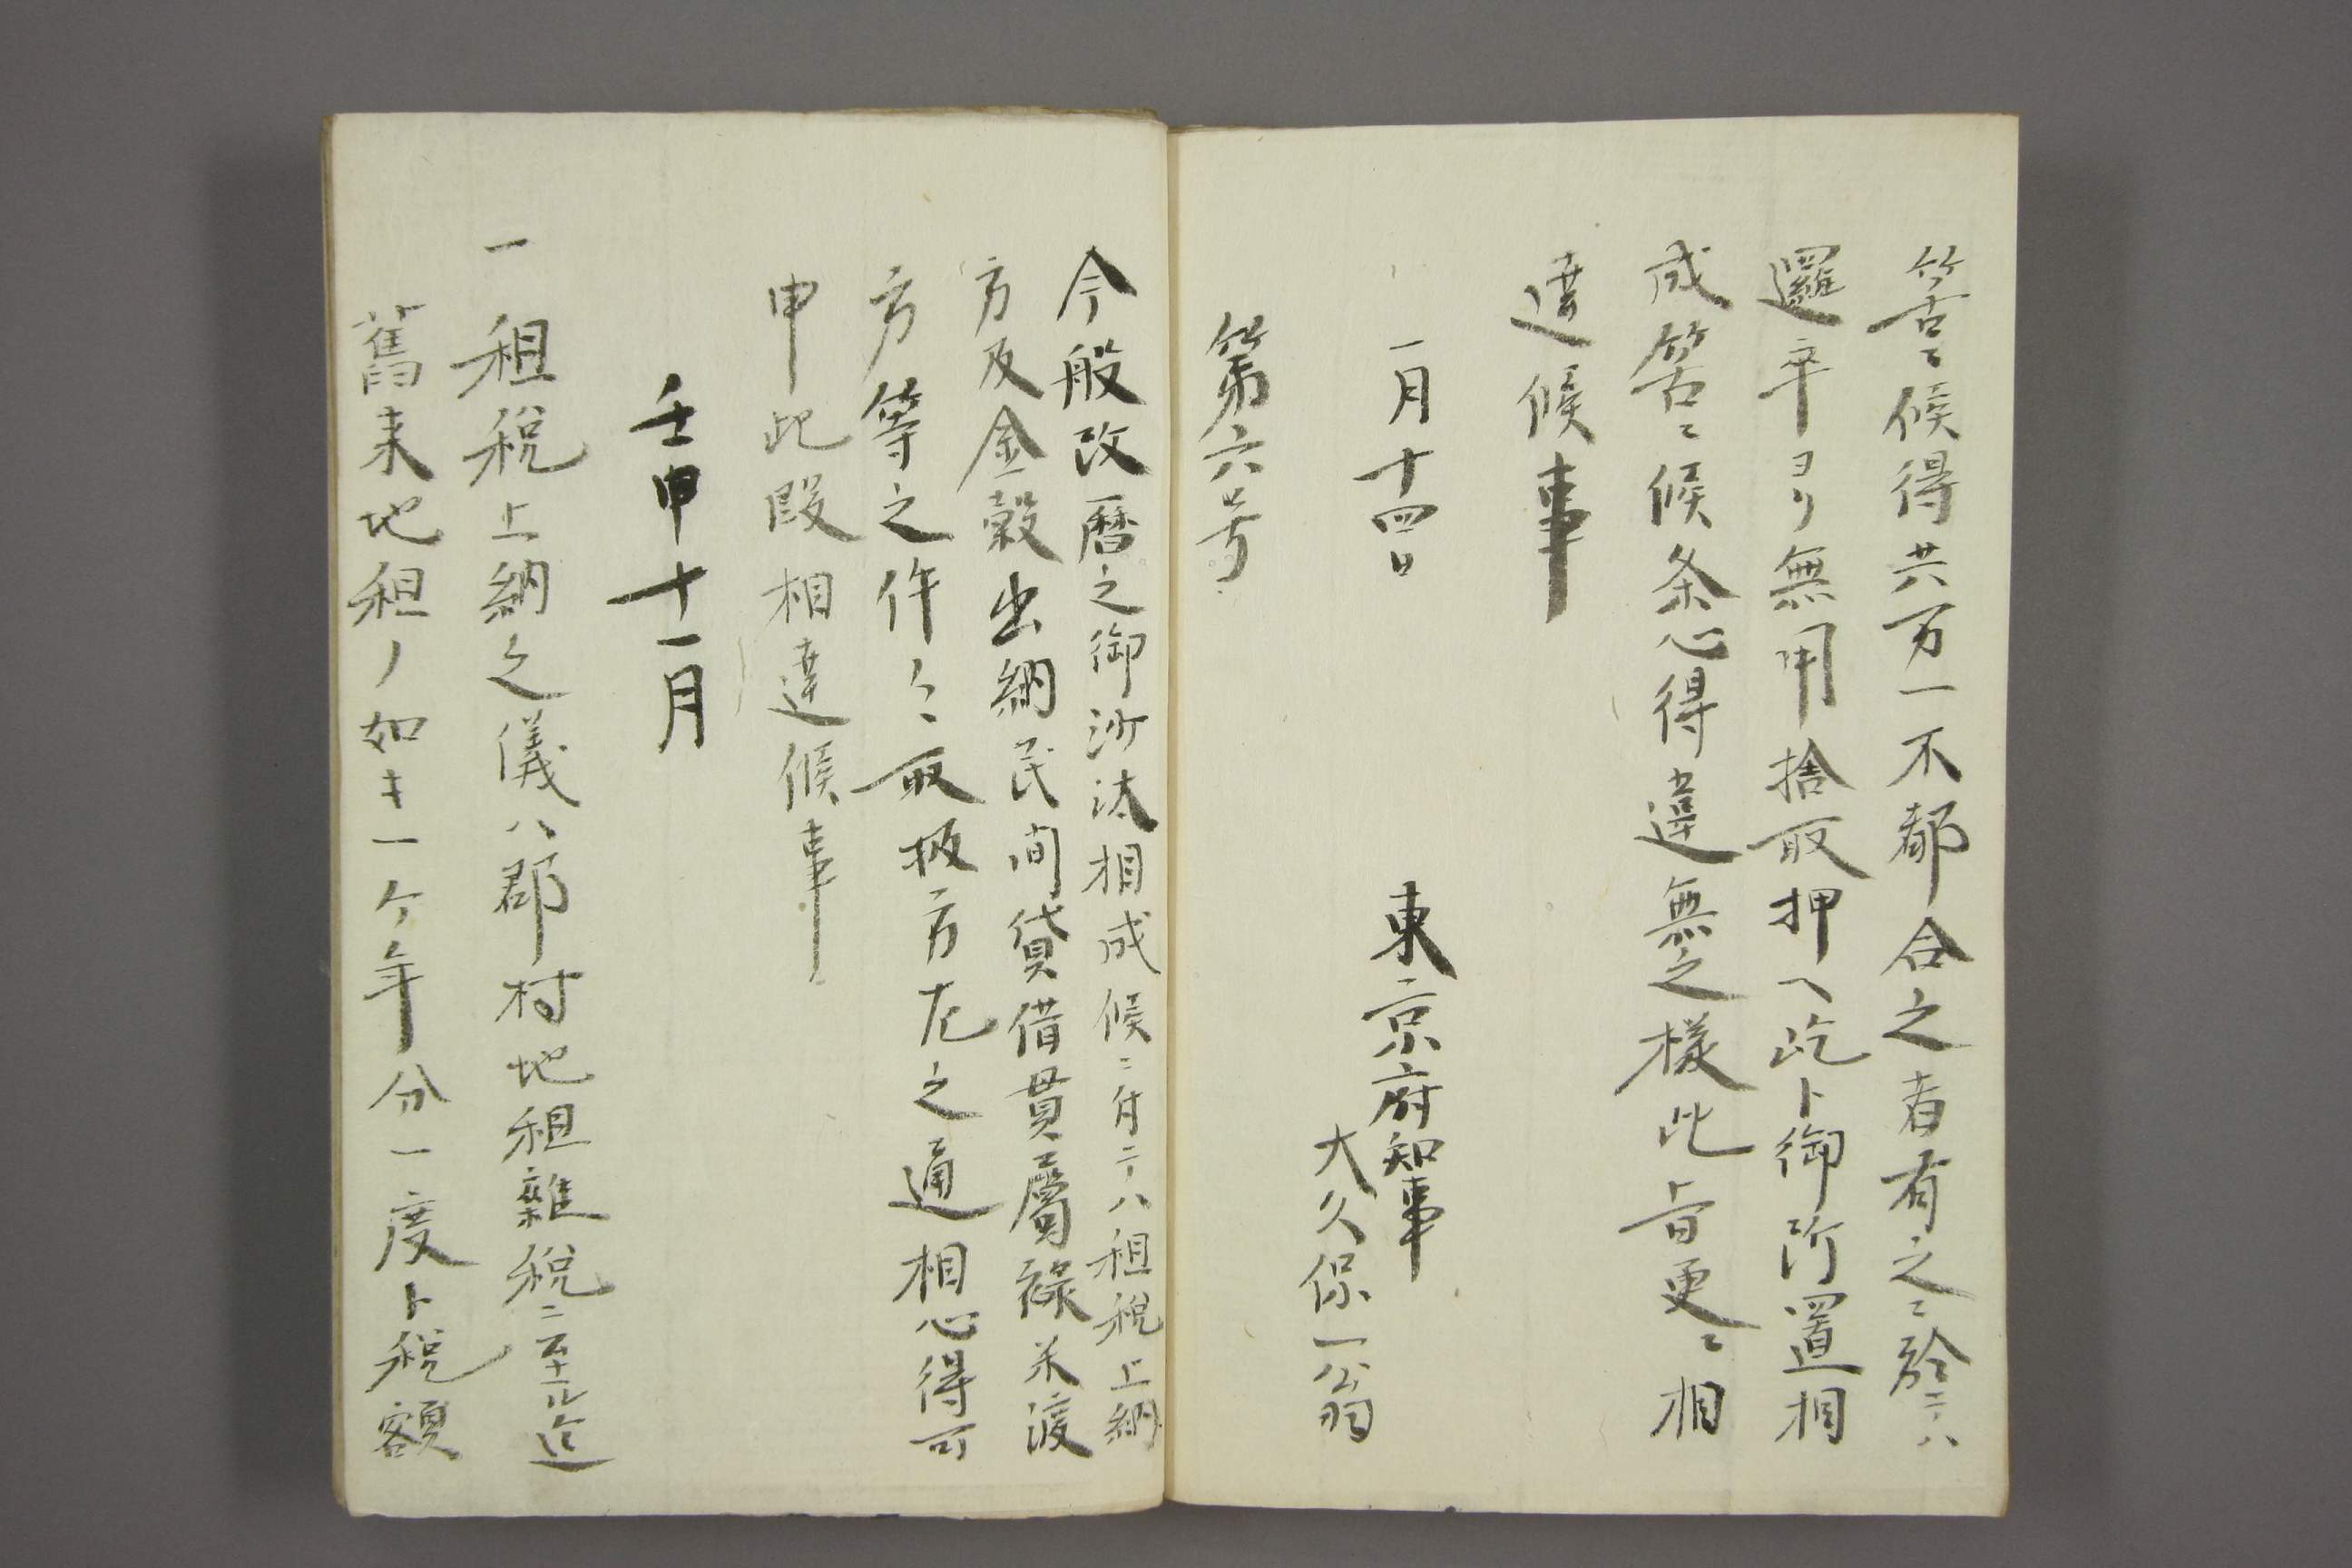 筈ニ候得共万一不都合之者有之ニ於テハ
邏卒ヨリ無用捨取押ヘ訖ト御所置相
成筈ニ候条心得違無之様此旨更ニ相
達候事
一月十四日
東京府知事
大久保一翁
第六号
今般改暦之御沙汰相成候ニ付テハ租税上納
方及金穀出納民間貸借貫属禄米渡
方等之件々取扱方左之通相心得可
申此段相達候事
壬申十一月
一租税上納之儀ハ郡村地租雑税ニ至ル迄
舊来地租ノ如キ一ケ年分一度ト税額